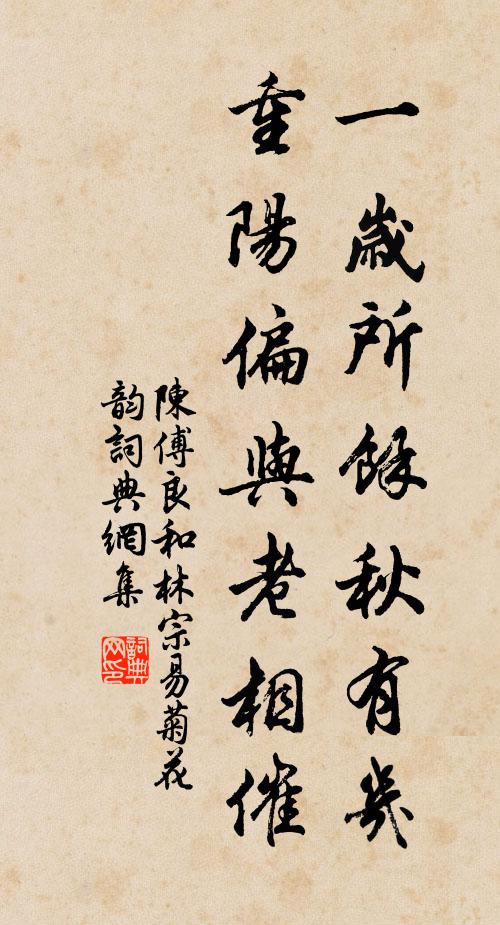 一歲所餘秋有幾
重陽偏與老相催
陳傅良和林宗易菊花
韵詞典網集
詞典网印